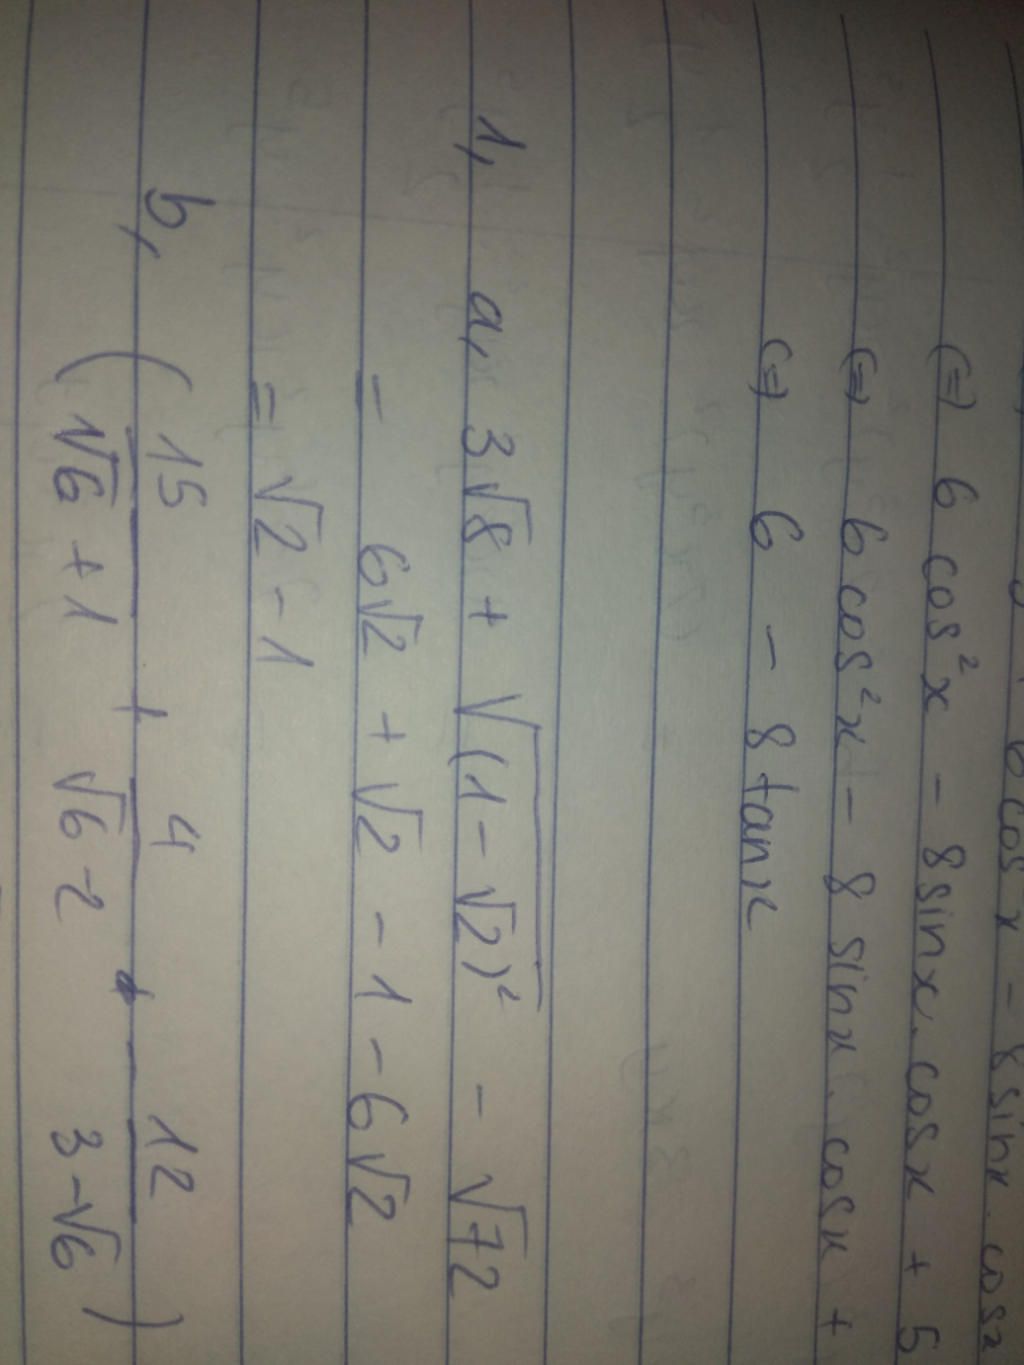 6 cos x - 8 sinx . cosx
(=) 6 cos²x - 8 sinx . cosx + 5
(=) 6 cos²x - 8 sinx . cosx +
(=) 6 - 8 tanx
1, a, 3√8 + √(1-√2)² - √72
= 6√2 + √2 - 1 - 6√2
= √2 - 1
b, (15/(√6 + 1) + 4/(√6 - 2) - 12/(3 - √6))